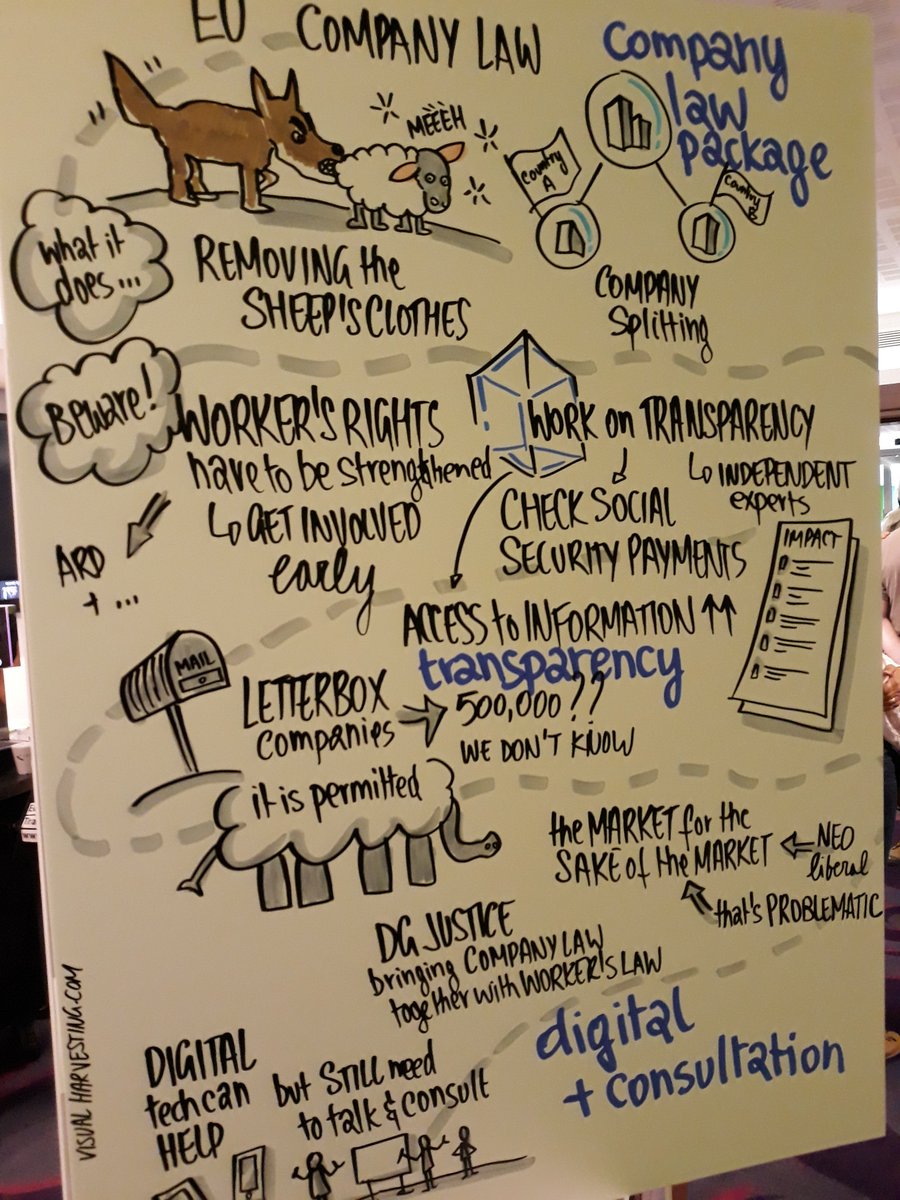 EU COMPANY LAW
company
law
package
MEEEH
Country
A
Country
What it
does...
REMOVING the
SHEEP'S CLOTHES
COMPANY
Splitting
Beware!
WORKER'S RIGHTS
have to be strengthened
↳ GET INVOLVED
early
ARD
+ ...
WORK on TRANSPARENCY
↳ INDEPENDENT
experts
CHECK SOCIAL
SECURITY PAYMENTS
IMPACT
ACCESS to INFORMATION ↑↑
transparency
MAIL
LETTERBOX
companies
500,000??
WE DON'T KNOW
it is permitted
the MARKET for the
SAKE of the MARKET
NEO
liberal
that's PROBLEMATIC
DG JUSTICE
bringing COMPANY LAW
together with WORKER'S LAW
digital
+ consultation
DIGITAL
tech can
HELP
but STILL need
to talk & consult
VISUAL HARVESTING.COM